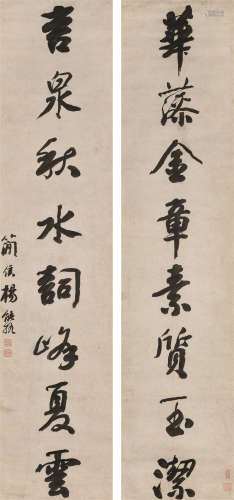 華藻金章素質玉潔
言泉秋水詞峰夏雲
簫侯楊能格